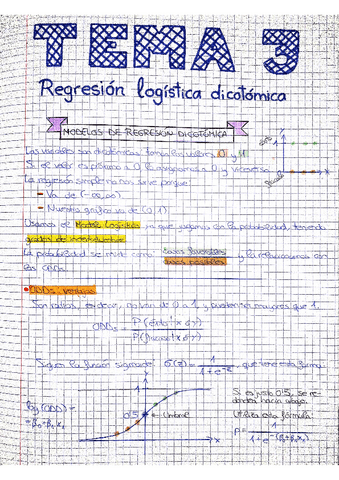 TEMA 3
Regresión logística dicotómica
MODELOS DE REGRESIÓN DICOTÓMICA
Las variables son dicotómicas. Toman los valores 0 y 1.
Si el valor es próximo a 0 lo asignamos a 0 y viceversa
La regresión simple no nos sirve porque:
- Va de (-∞,∞)
- Nuestra gráfica va de (0,1)
Usamos el Modelo Logístico ya que jugamos con la probabilidad, teniendo
grados de incertidumbre
La probabilidad se mide como casos favorables / casos posibles y la relacionamos con
los ODDs.
ODDs: ventajas
Son ratios, es decir, no van de 0 a 1, y pueden ser mayores que 1.
ODDs = P(éxito | x) / P(fracaso | x)
Siguen la función sigmoide: σ(z) = 1 / 1 + e^-z, que tiene esta forma:
log(ODD) =
= β0 + β1x1
1
0'5
← Umbral
x
Si es justo 0'5, se re-
dondea hacia abajo.
Utiliza esta fórmula:
p = 1 / 1 + e^-(β0+β1x1)